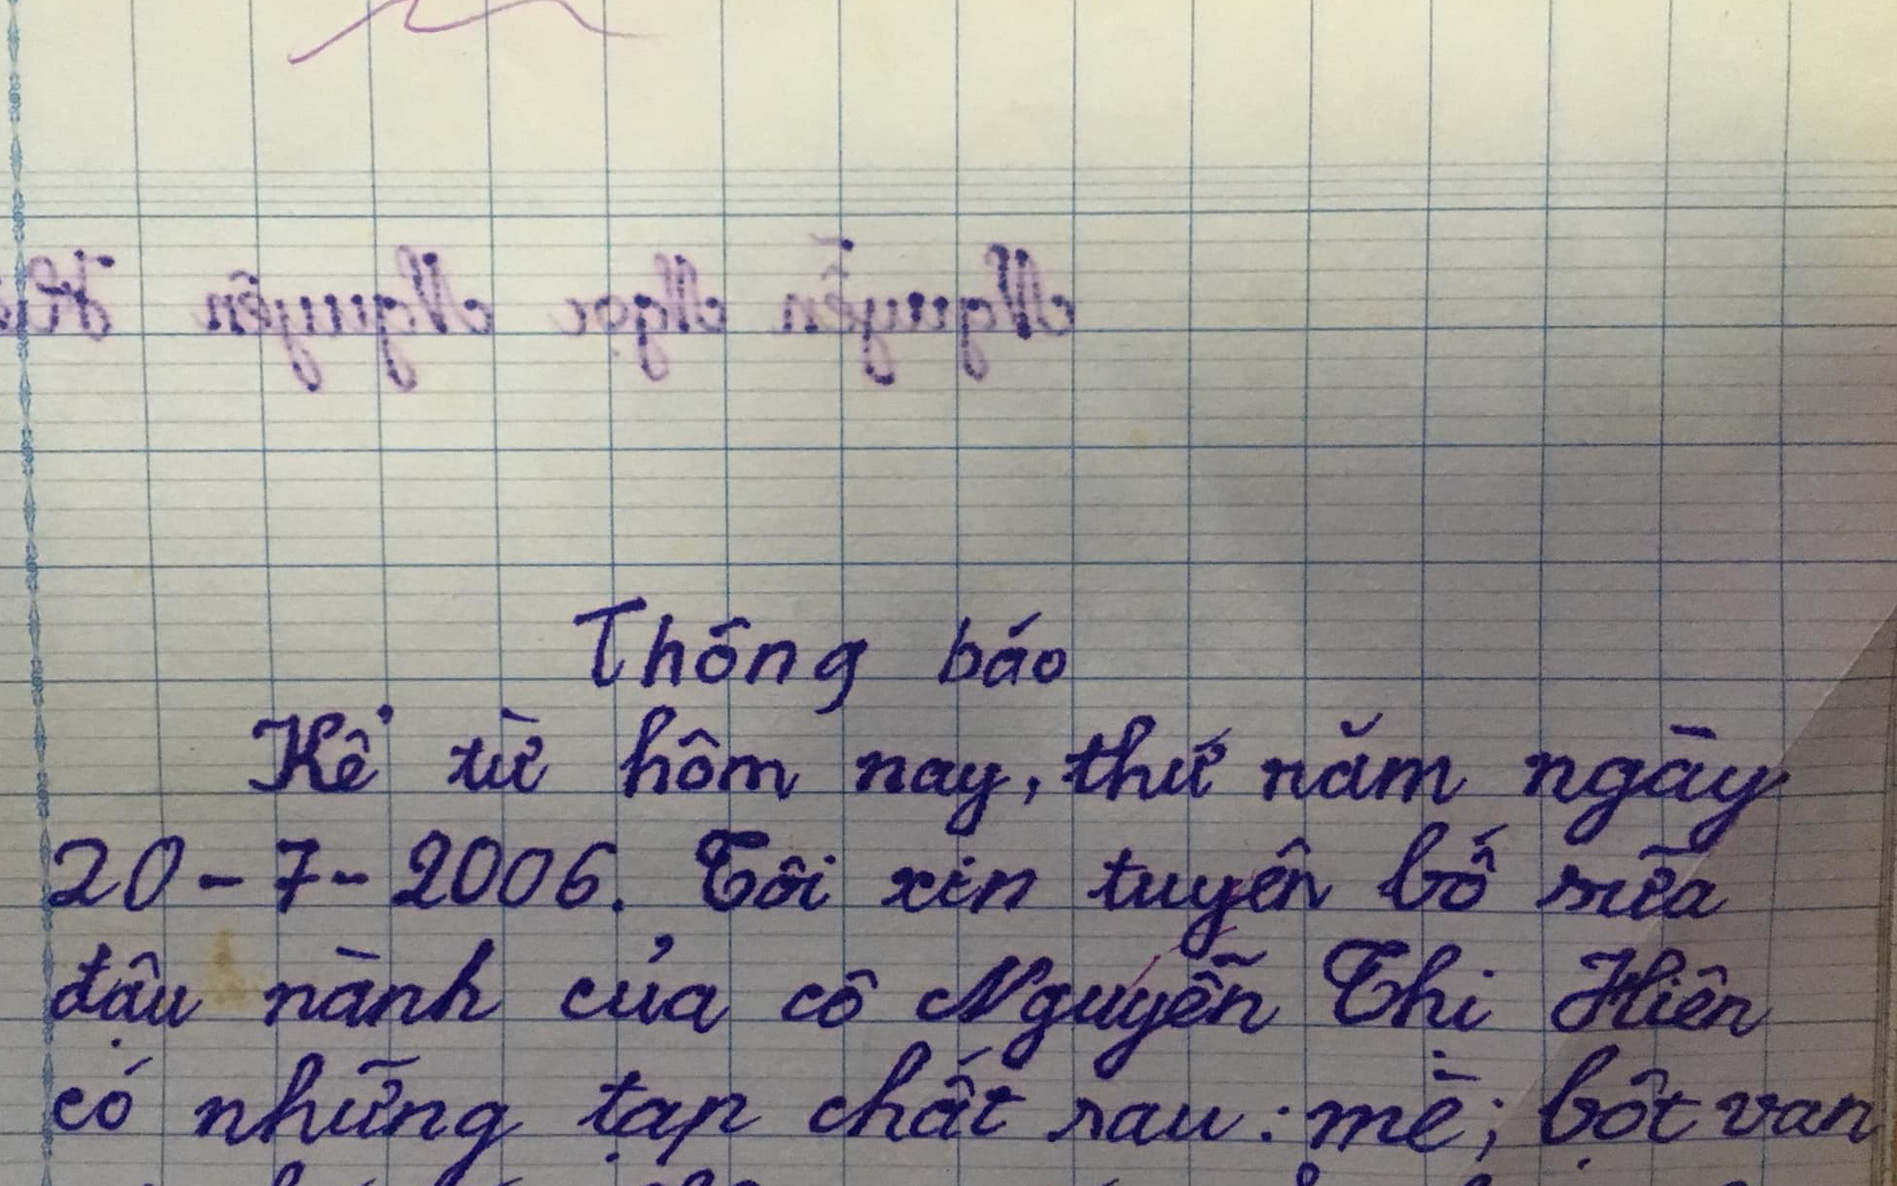 Nguyễn Ngọc Nguyên
Thông báo
Kể từ hôm nay, thứ năm ngày
20-7-2006. Tôi xin tuyên bố sữa
đậu nành của cô Nguyễn Thị Hiên
có những tạp chất sau: mè; bột van